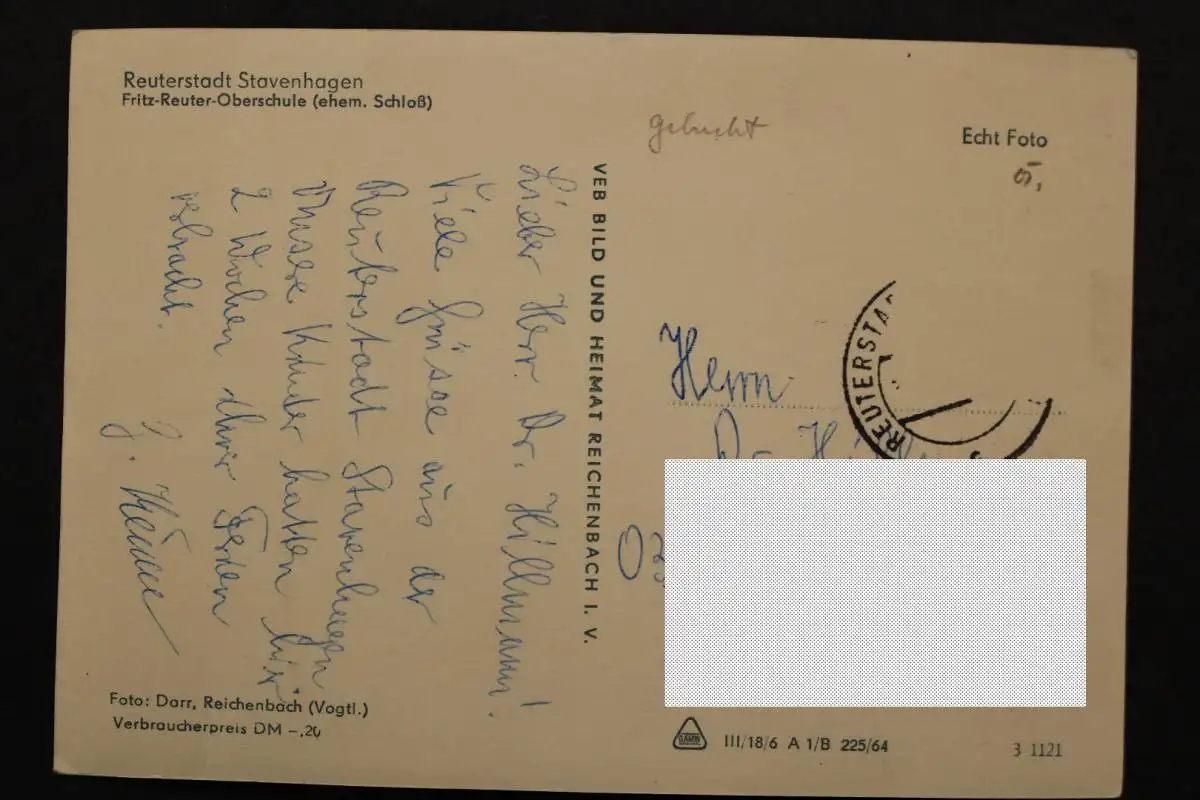 Reuterstadt Stavenhagen
Fritz-Reuter-Oberschule (ehem. Schloß)
Lieber Herr Dr. Hillmann!
Viele Grüsse aus der
Reuterstadt Stavenhagen
Unsere Kinder hatten hier
2 Wochen ihre Ferien
verbracht.
VEB BILD UND HEIMAT REICHENBACH I. V.
gebucht
Echt Foto
REUTERSTA
Herrn
Dr.
Foto: Darr, Reichenbach (Vogtl.)
Verbraucherpreis DM -,20
III/18/6 A 1/B 225/64
3 1121